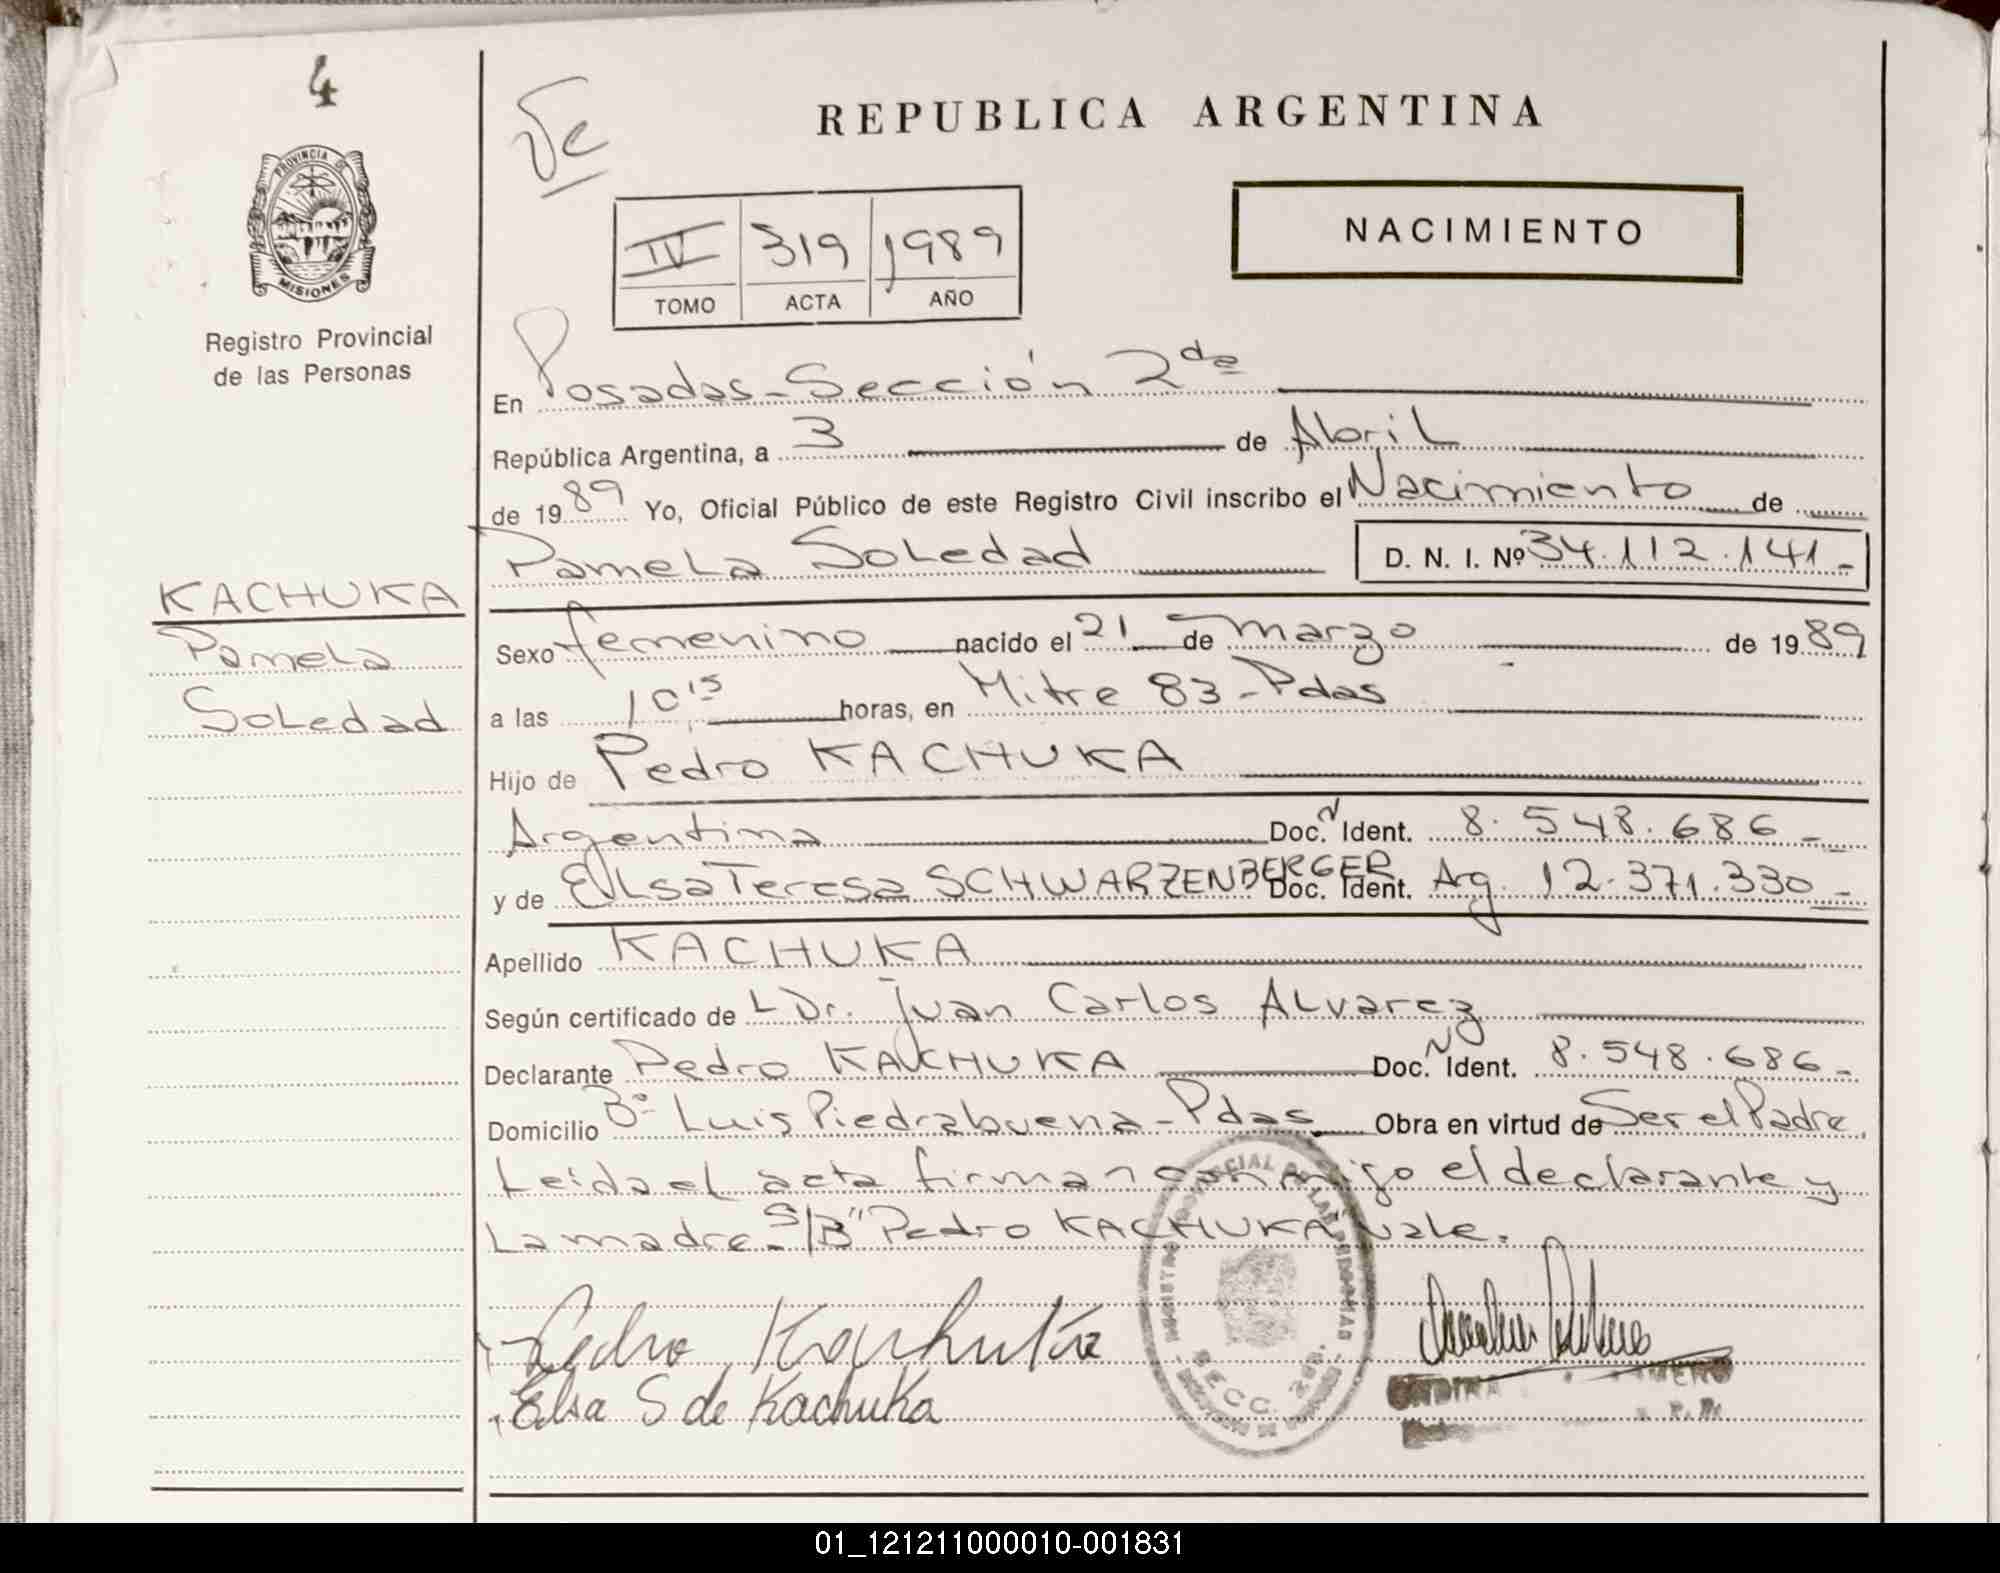 4
PROVINCIA DE
MISIONES
Registro Provincial
de las Personas
REPUBLICA ARGENTINA
IV 319 1989
TOMO ACTA AÑO
NACIMIENTO
En Posadas - Sección 2da
República Argentina, a 3 de Abril
de 1989 Yo, Oficial Público de este Registro Civil inscribo el Nacimiento de
Pamela Soledad D. N. I. Nº 34.112.141.-
KACHUKA
Pamela
Soledad
Sexo femenino nacido el 21 de marzo de 1989
a las 10 15 horas, en Mitre 83 - Pdas
Hijo de Pedro KACHUKA
Argentina Doc. N Ident. 8.548.686 -
y de Elsa Teresa SCHWARZENBERGER Doc. Ident. Arg. 12.371.330 -
Apellido KACHUKA
Según certificado de L Dr. Juan Carlos Alvarez
Declarante Pedro KACHUKA Doc. N Ident. 8.548.686 -
Domicilio Bº Luis Piedrabuena - Pdas Obra en virtud de Ser el Padre.
Leída el acta firman conmigo el declarante y
La madre - S/B "Pedro KACHUKA" Vale.
Pedro Kachuka
Elsa S de Kachuka
SECC. 2da.
01_121211000010-001831